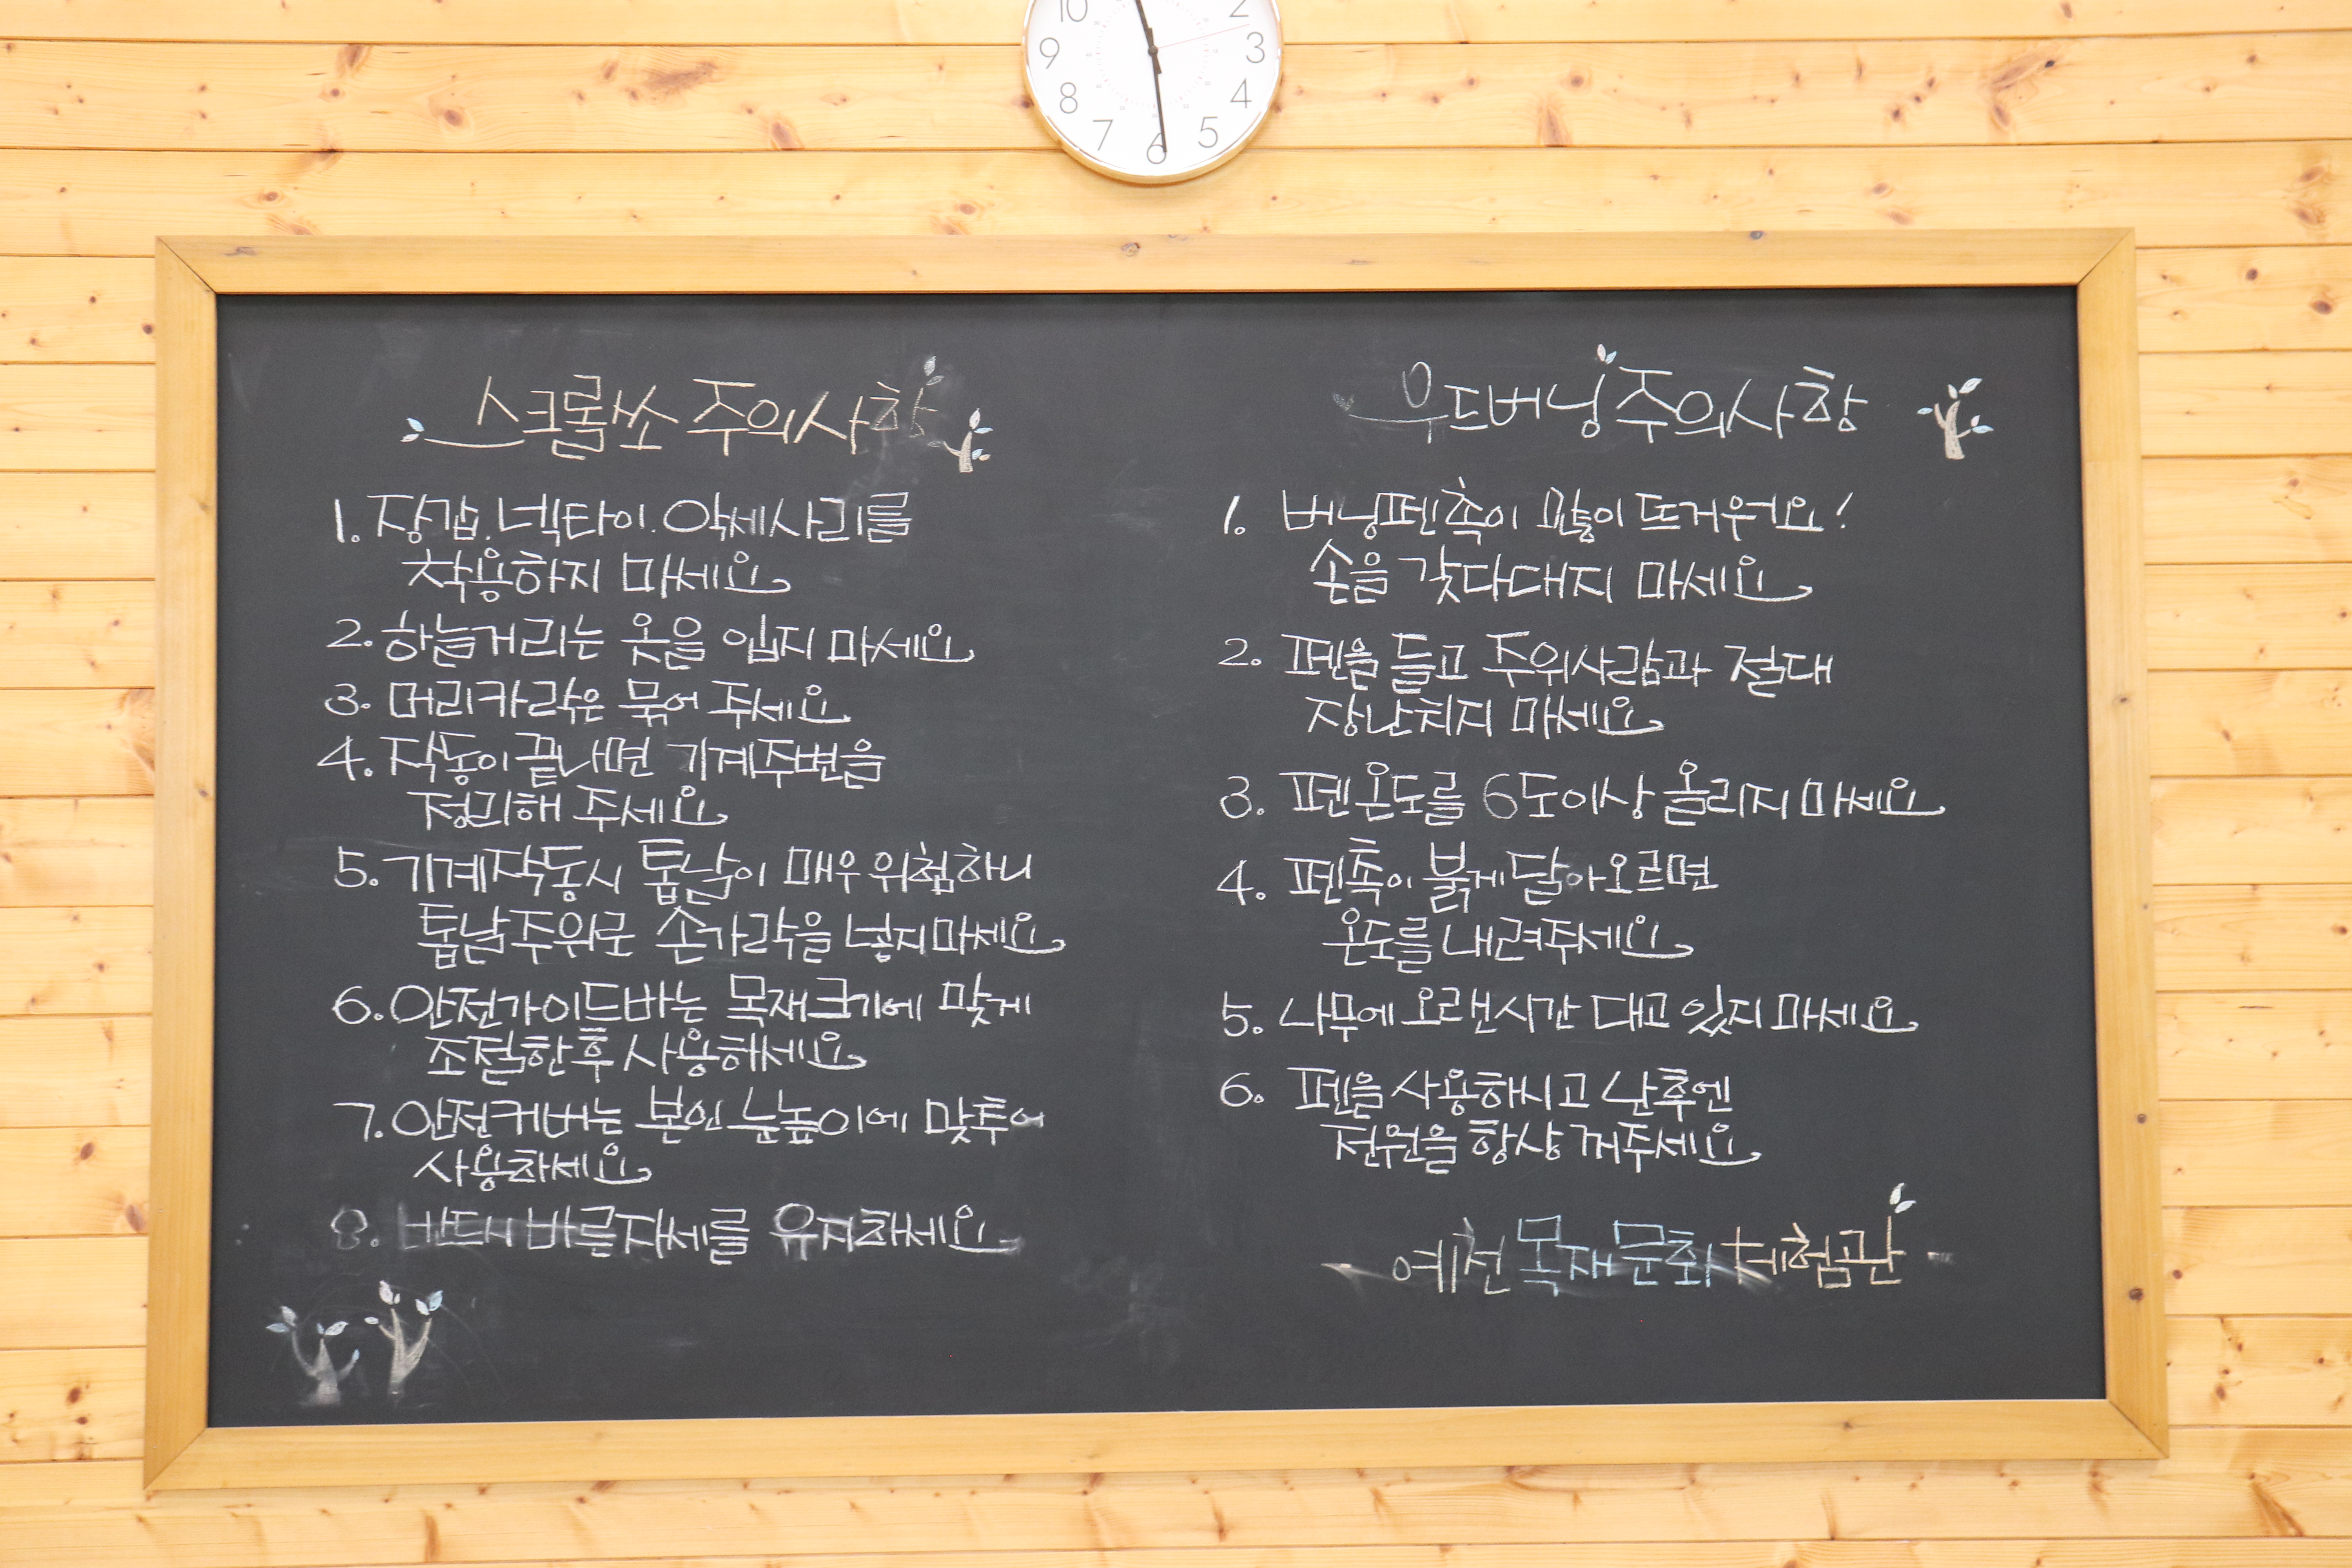 10
2
9
3
8
4
7
5
6
스크롤쏘 주의사항
1. 장갑. 넥타이. 악세사리를
착용하지 마세요
2. 하늘거리는 옷을 입지 마세요
3. 머리카락은 묶어 주세요
4. 작동이 끝나면 기계주변을
정리해 주세요
5. 기계작동시 톱날이 매우 위험하니
톱날주위로 손가락을 넣지마세요
6. 안전가이드바는 목재크기에 맞게
조절한후 사용하세요
7. 안전커버는 본인 눈높이에 맞투어
사용하세요
8. 반드시 바른자세를 유지하세요
우드버닝 주의사항
1. 버닝펜촉이 많이 뜨거워요!
손을 갖다대지 마세요
2. 펜을 들고 주위사람과 절대
장난치지 마세요
3. 펜온도를 6도이상 올리지 마세요
4. 펜촉이 붉게 달아오르면
온도를 내려주세요
5. 나무에 오랜시간 대고 있지 마세요
6. 펜을 사용하시고 난후엔
전원을 항상 꺼주세요
예천 목재문화체험관